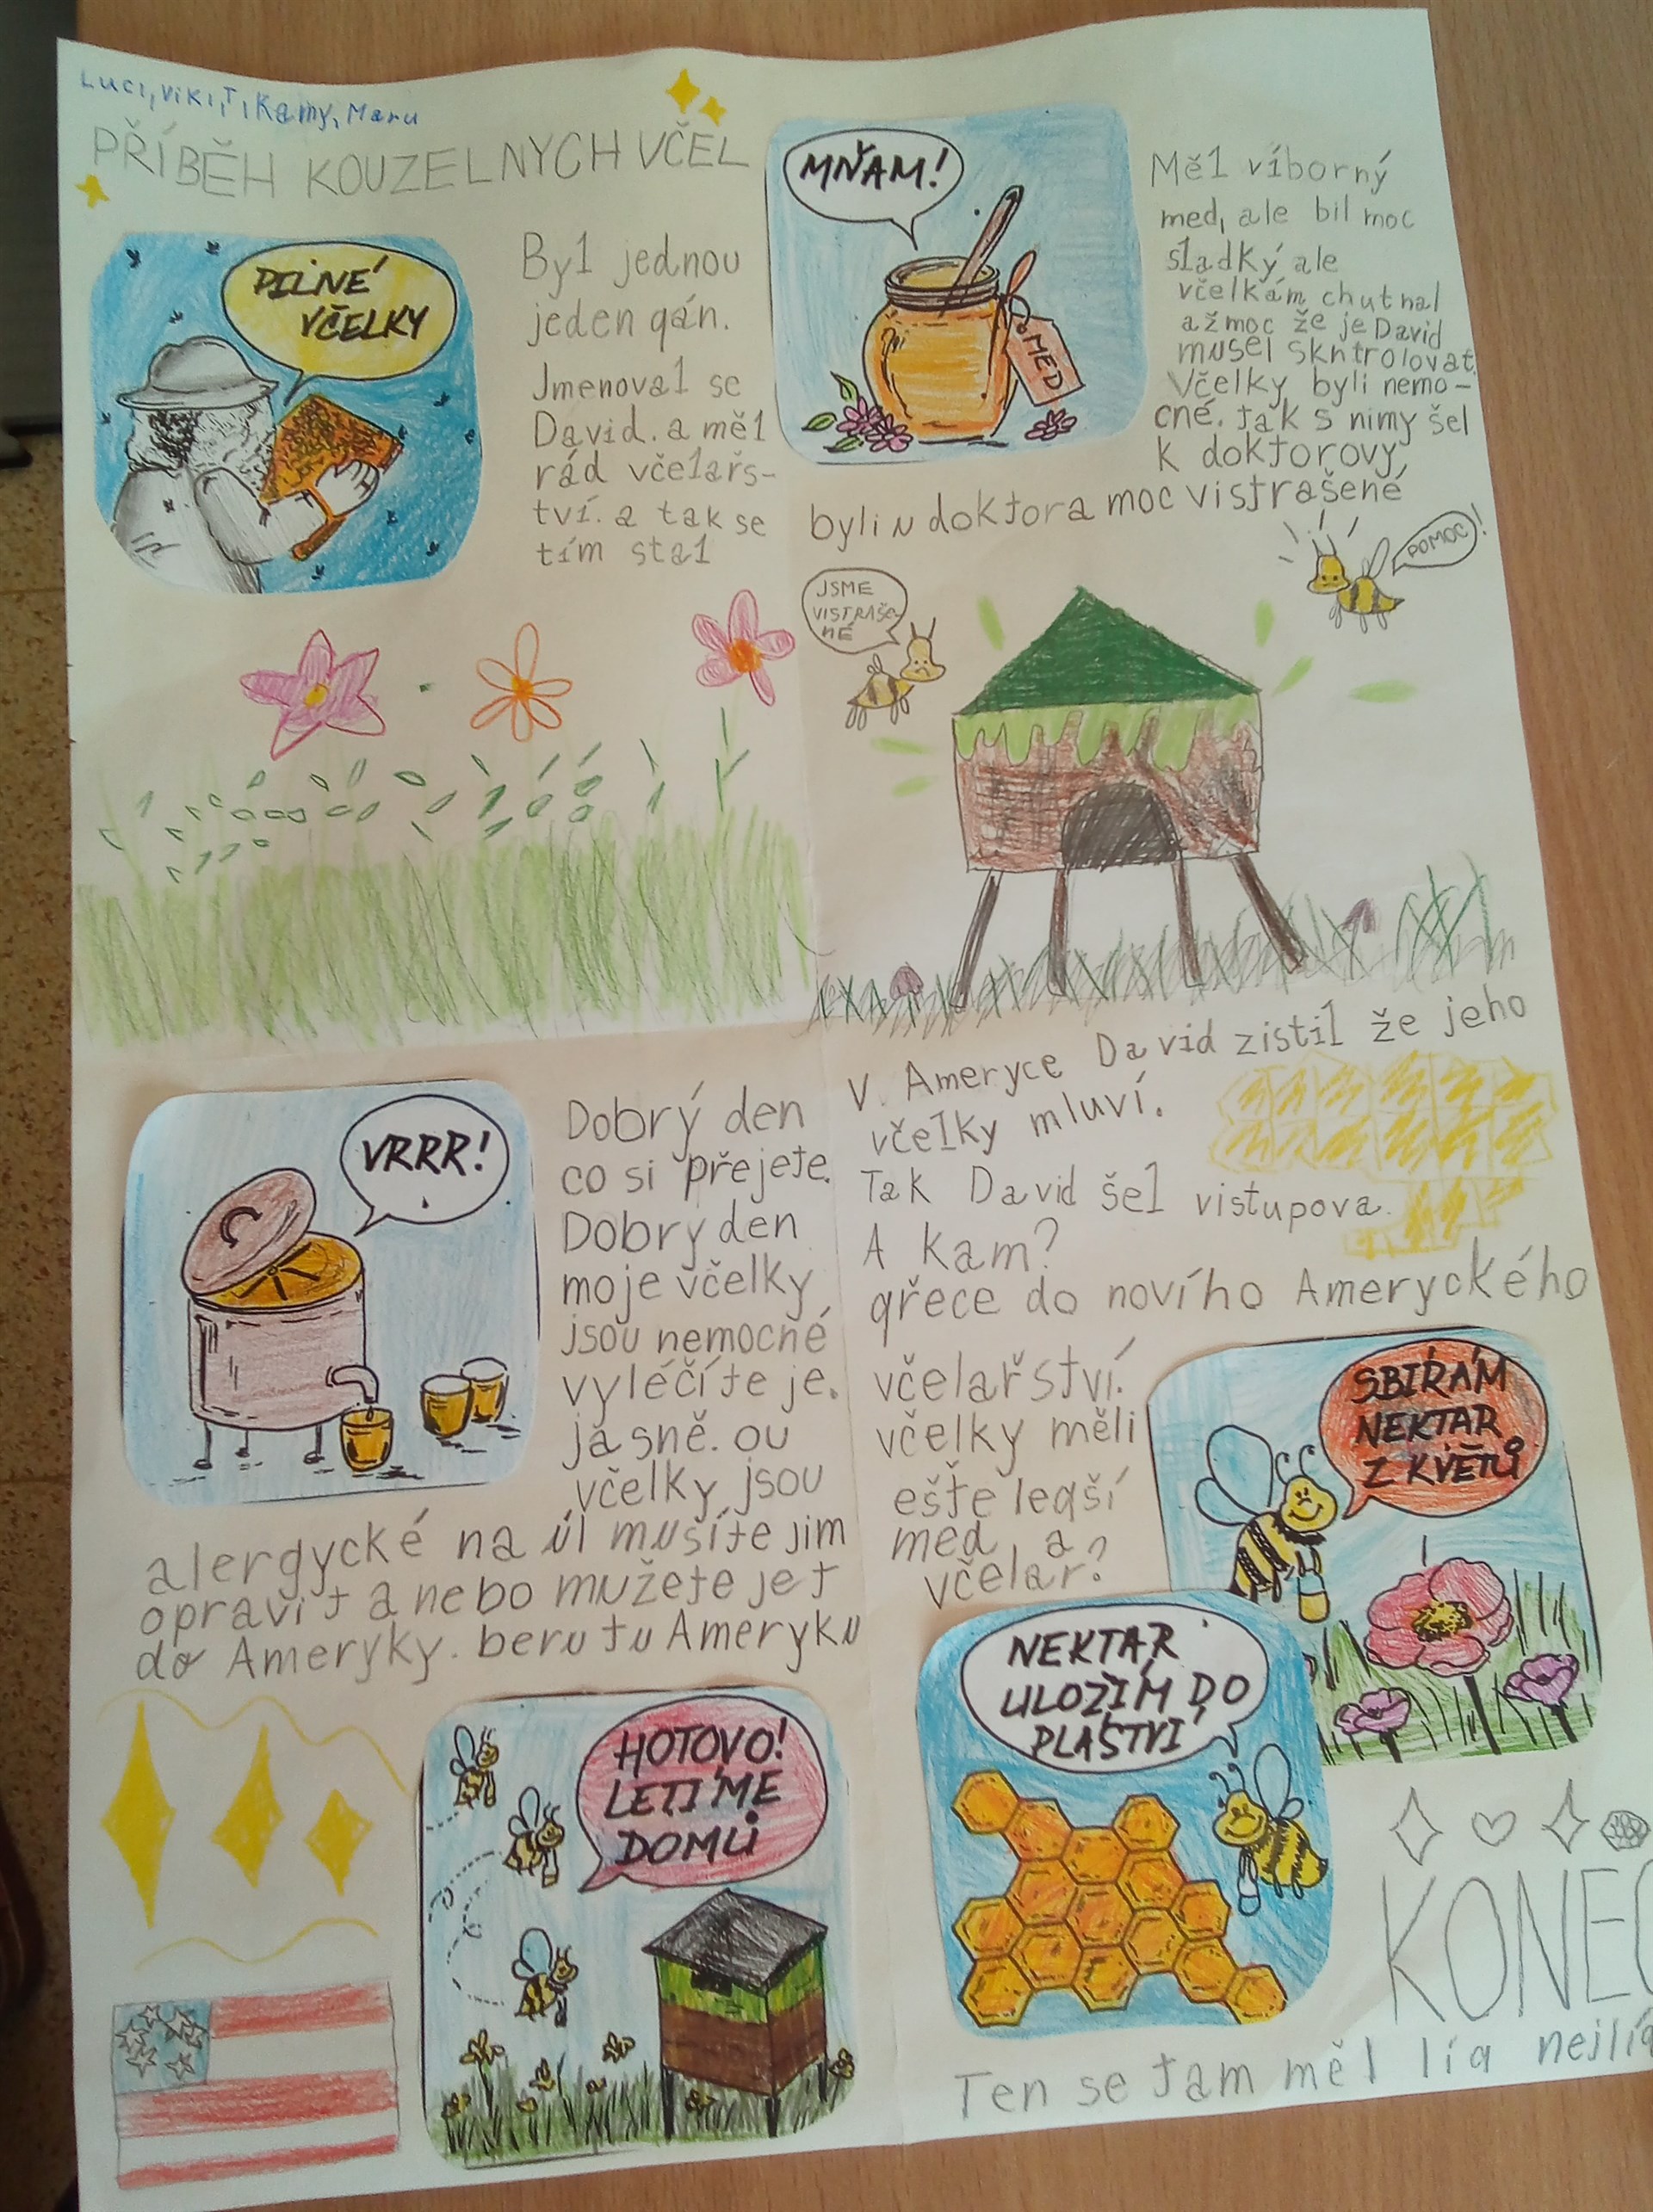 Luci, Viki, T, Kamy, Maru
PŘÍBĚH KOUZELNYCH VČEL
PILNÉ
VČELKY
Byl jednou
jeden qán.
Jmenoval se
David. a měl
rád včelařs-
tví. a tak se
tím stal
MŇAM!
MED
Měl víborný
med, ale bil moc
sladký ale
včelkám chutnal
až moc že je David
musel skntrolovat.
Včelky byli nemo-
cné. tak s nimy šel
k doktorovy,
byli u doktora moc vistrašené
JSME
VISTRAŠE-
NÉ
POMOC!
VRRR!
Dobrý den
co si přejete.
Dobrý den
moje včelky
jsou nemocné
vyléčíte je.
jasně. ou
včelky jsou
alergycké na úl musíte jim
opravit a nebo mužete jet
do Ameryky. beru tu Ameryku
HOTOVO!
LETÍME
DOMŮ
V Ameryce David zistil že jeho
včelky mluví.
Tak David šel vistupova.
A kam?
qřece do novího Ameryckého
včelařství.
včelky měli
ešťe leqší
med, a
včelař?
SBÍRÁM
NEKTAR
Z KVĚTŮ
NEKTAR
ULOŽÍM DO
PLÁSTVÍ
KONEC
Ten se tam měl líq